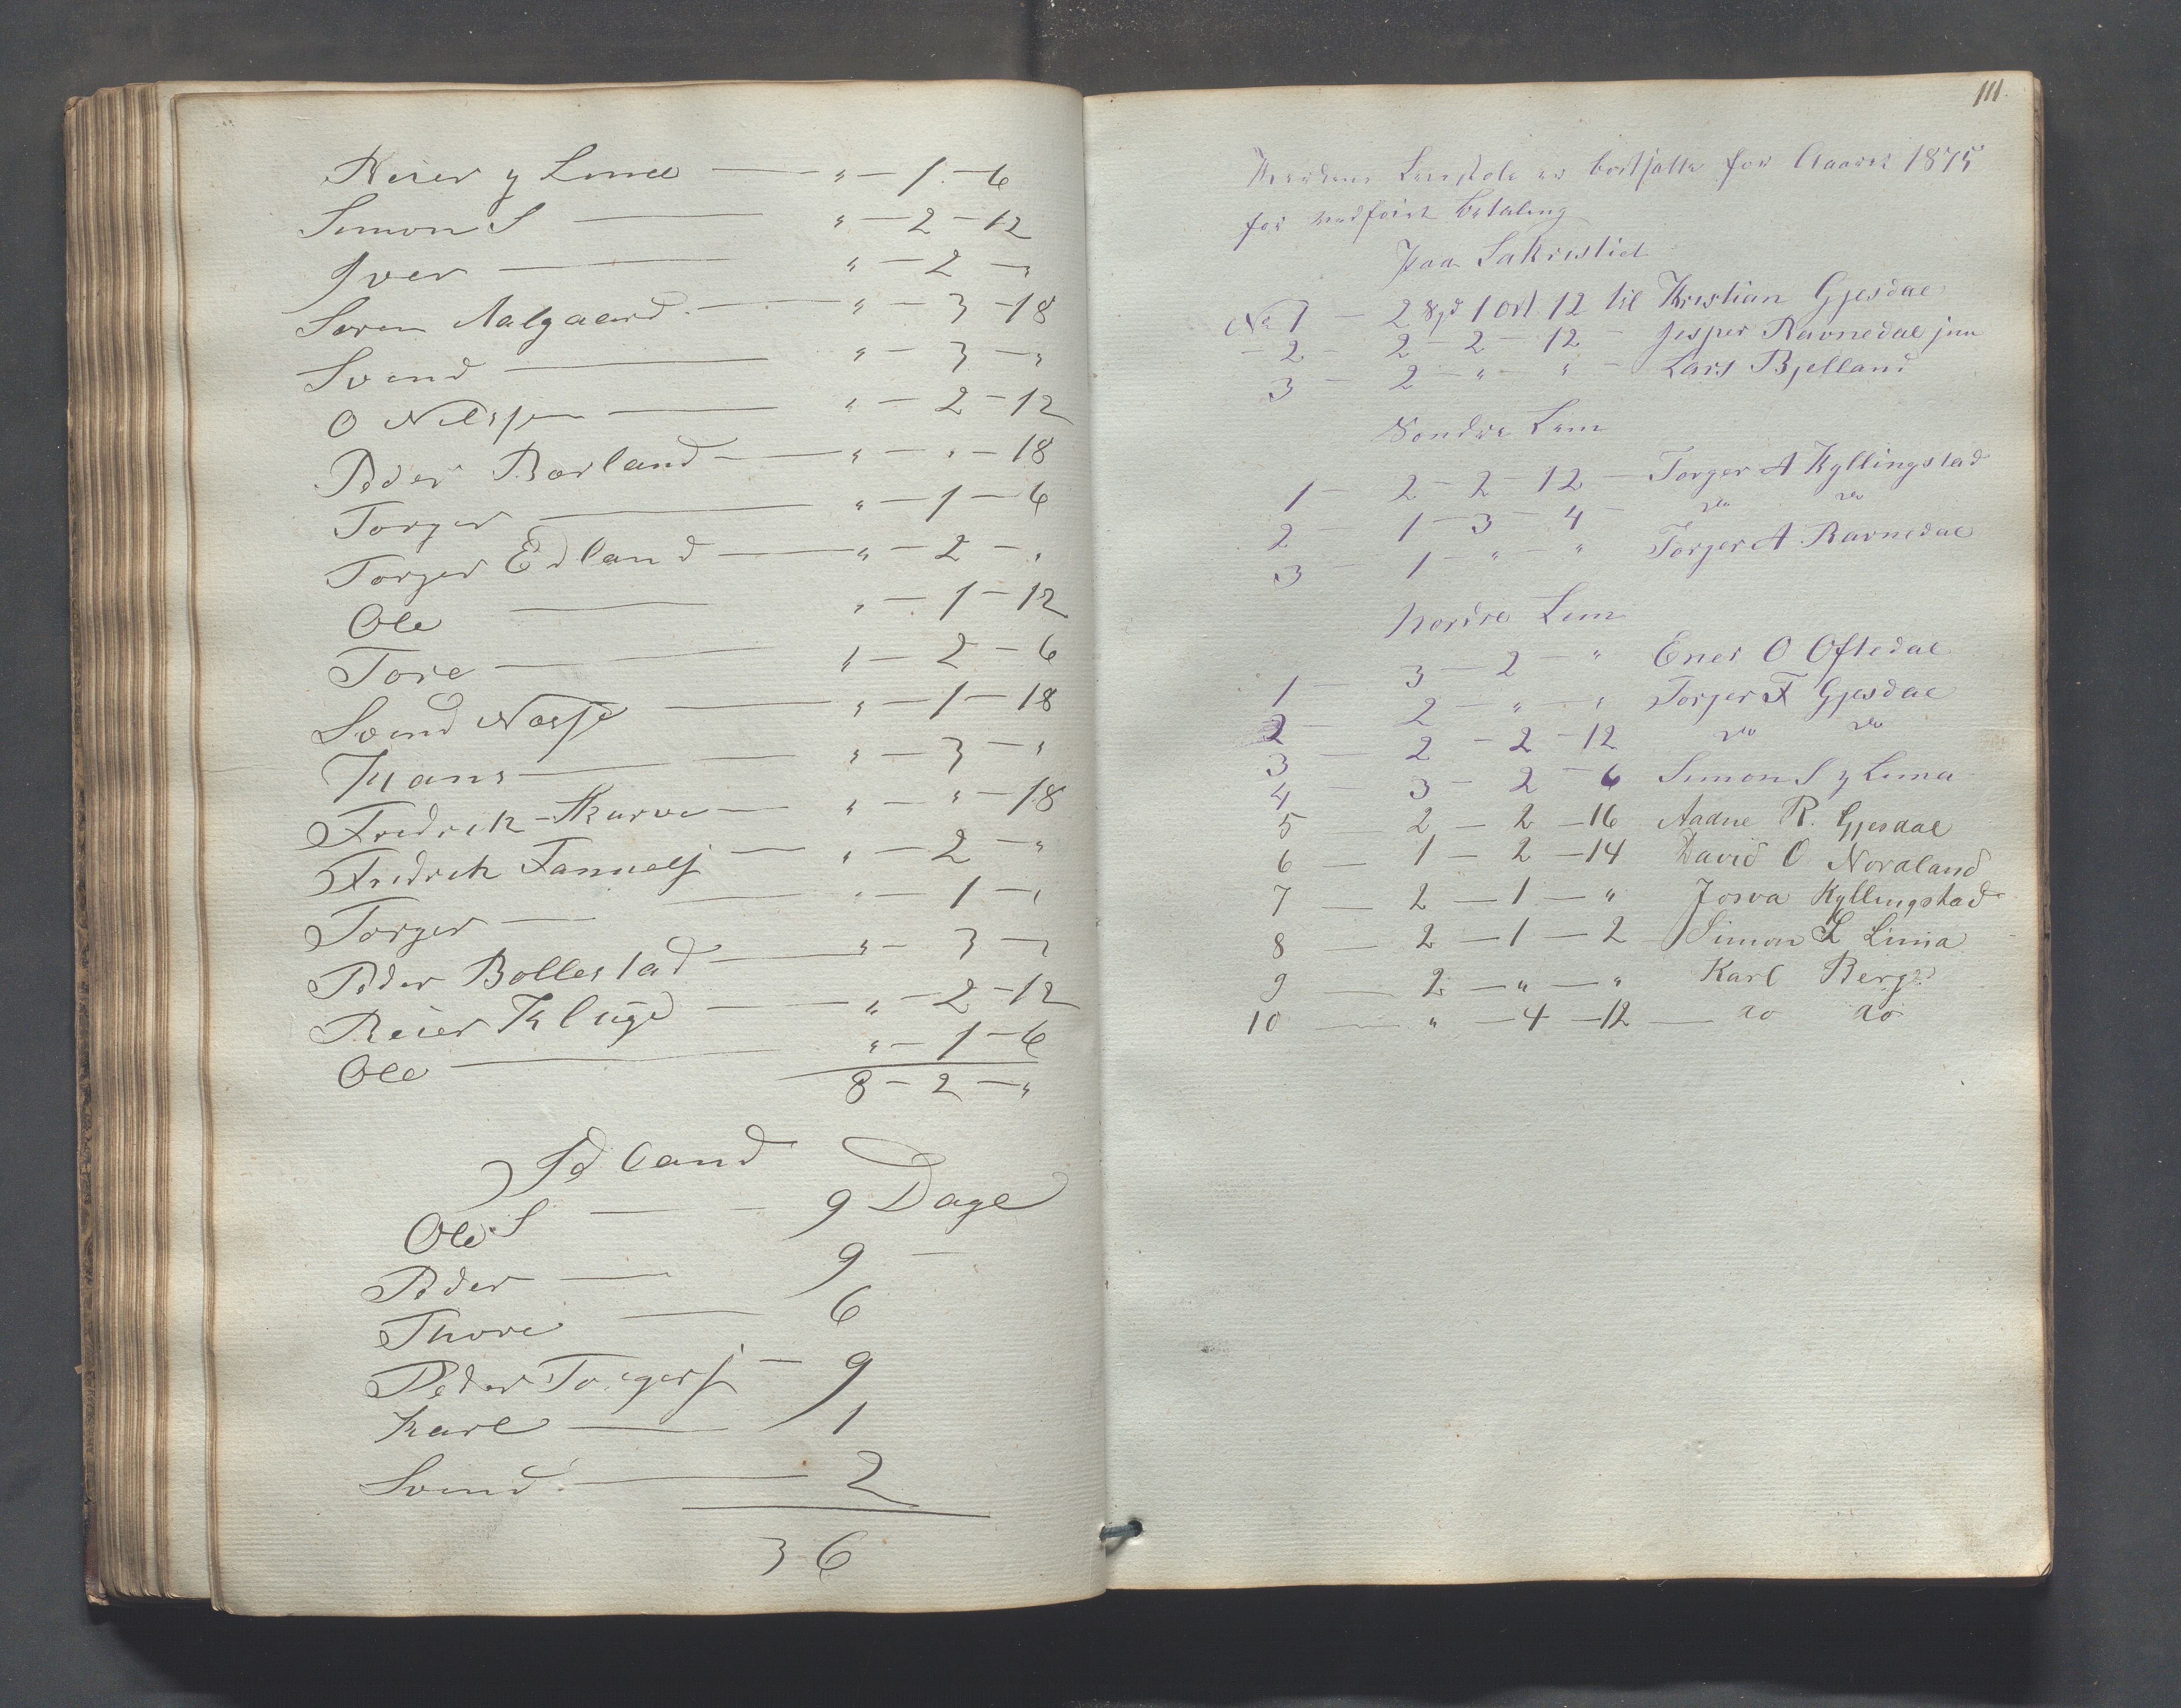 Reier y Lima — " — 1 — 6
Simon S — " — 2 — 12
Iver — " — 2 — "
Søren Aalgaard — " — 3 — 18
Svend — " — 3 — "
O Nilssen — " — 2 — 12
Peder Børland — " — " — 18
Torger — " — 1 — 6
Torger Edland — " — 2 — "
Ole — " — 1 — 12
Tore — " — 2 — 6
Svend Næsse — " — 1 — 18
Hans — " — 3 — "
Fredrik Skurve — " — " — 18
Fredrik — " — 2 — "
Torger — " — 1 — "
Peder Bollestad — " — 3 — "
Reier Kluge — " — 2 — 12
Ole — " — 1 — 6
8 — 2 — "
Edland
Ole S — 9 Dage
Peder — 9 —
Thore — 6
Peder Torgersj — 9
Karl — 1
Svend — 2
36
111.
er bortsatte for Aaaret 1875
for vedføiet betaling
paa Sakristiet
No 1 — 2 Spd 1 ort 12 til Kristian Gjesdal
- 2 - 2 - 2 - 12 - Jesper Ravnedal jun
3 - 2 - " - " - Lars Bjelland
Søndre Lem
1 - 2 - 2 - 12 - Torger A Kyllingstad
2 - 1 - 3 - 4 - do do
3 - 1 - " - " Torger A. Ravnedal
Nordre Lem
1 - 3 - 2 - " Ener O Oftedal
2 - 2 - " - " Torger F Gjesdal
3 - 2 - 2 - 12 do do
4 - 3 - 2 - 6 Simon S y Lima
5 — 2 — 2 — 16 Aadne R. Gjesdal
6 — 1 — 2 — 14 David O Nordland
7 — 2 — 1 — " Josva Kyllingstad
8 — 2 — 1 — 2 Simon L Lima
9 — 2 — " — " Karl Berge
10 — " — 4 — 12 — do do